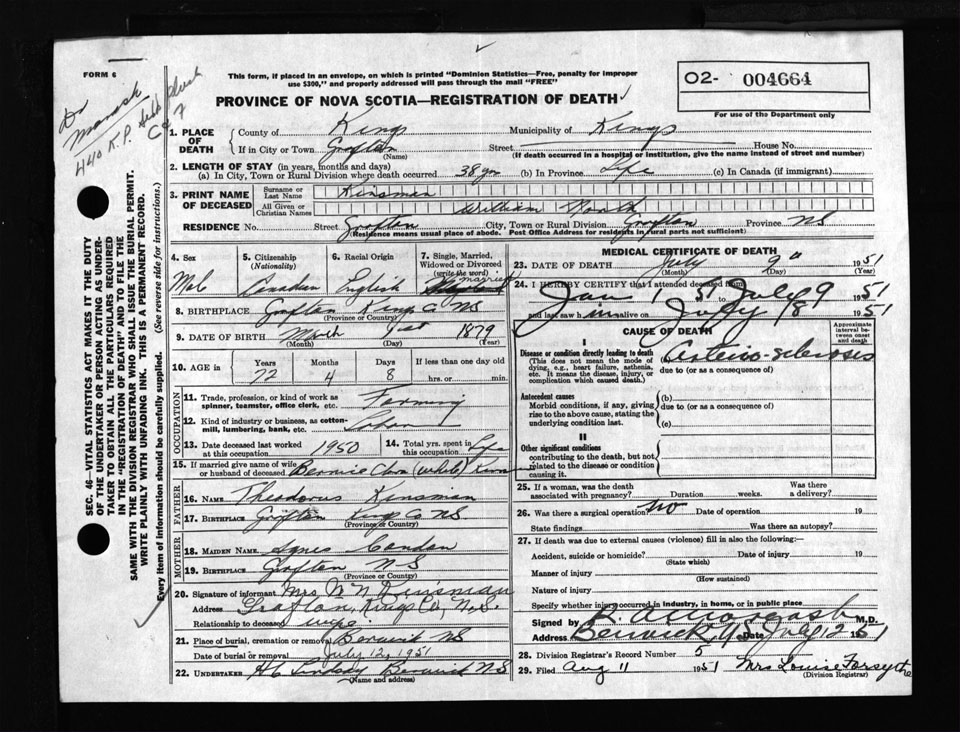 FORM 6
This form, if placed in an envelope, on which is printed "Dominion Statistics—Free, penalty for improper
use $300," and properly addressed will pass through the mail "FREE"
O2- 004664
PROVINCE OF NOVA SCOTIA—REGISTRATION OF DEATH
For use of the Department only
Dr
440 K.P.
1. PLACE OF DEATH
County of Kings Municipality of Kings
If in City or Town Grafton Street House No.
(Name) (If death occurred in a hospital or institution, give the name instead of street and number)
2. LENGTH OF STAY (in years, months and days)
(a) In City, Town or Rural Division where death occurred 38 yrs (b) In Province Life (c) In Canada (if immigrant)
3. PRINT NAME OF DECEASED
Surname or Last Name Kinsman
All Given or Christian Names William
RESIDENCE No. Street Grafton City, Town or Rural Division Grafton Province NS
(Residence means usual place of abode. Post Office Address for residents in rural parts not sufficient)
4. Sex Male
5. Citizenship (Nationality) Canadian
6. Racial Origin English
7. Single, Married, Widowed or Divorced (write the word) married
8. BIRTHPLACE Grafton Kings Co NS
(Province or Country)
9. DATE OF BIRTH March 1st 1879
(Month) (Day) (Year)
10. AGE in Years 72 Months 4 Days 8 If less than one day old hrs. or min.
OCCUPATION
11. Trade, profession, or kind of work as spinner, teamster, office clerk, etc. Farming
12. Kind of industry or business, as cotton-mill, lumbering, bank, etc.
13. Date deceased last worked at this occupation 1950
14. Total yrs. spent in this occupation Life
15. If married give name of wife or husband of deceased (White)
FATHER
16. NAME Theodorus Kinsman
17. BIRTHPLACE Grafton Kings Co NS
(Province or Country)
MOTHER
18. MAIDEN NAME Agnes
19. BIRTHPLACE Grafton NS
(Province or Country)
20. Signature of informant Mrs W N Kinsman
Address Grafton, Kings Co, N.S.
Relationship to deceased wife
21. Place of burial, cremation or removal Berwick NS
Date of burial or removal July 12, 1951
22. UNDERTAKER Berwick NS
(Name and address)
MEDICAL CERTIFICATE OF DEATH
23. DATE OF DEATH July 9 1951
(Month) (Day) (Year)
24. I HEREBY CERTIFY that I attended deceased from
Jan 1 51 to July 9 1951
and last saw him alive on July 8 1951
CAUSE OF DEATH
Approximate interval between onset and death
I
Disease or condition directly leading to death
(This does not mean the mode of dying, e.g., heart failure, asthenia, etc. It means the disease, injury, or complication which caused death.)
Arterio-sclerosis
due to (or as a consequence of)
Antecedent causes
Morbid conditions, if any, giving rise to the above cause, stating the underlying condition last.
(b)
due to (or as a consequence of)
(c)
II
Other significant conditions
contributing to the death, but not related to the disease or condition causing it.
25. If a woman, was the death associated with pregnancy? Duration weeks. Was there a delivery?
26. Was there a surgical operation? No Date of operation 19
State findings Was there an autopsy?
27. If death was due to external causes (violence) fill in also the following:—
Accident, suicide or homicide? Date of injury 19
(State which)
Manner of injury
(How sustained)
Nature of injury
Specify whether injury occurred in industry, in home, or in public place
Signed by M.D.
Address Berwick NS Date July 12 1951
28. Division Registrar's Record Number 5
29. Filed Aug 11 1951 Mrs Louise Forsythe
(Division Registrar)
SEC. 46—VITAL STATISTICS ACT MAKES IT THE DUTY
OF THE UNDERTAKER OR PERSON ACTING AS UNDER-
TAKER TO OBTAIN ALL THE PARTICULARS REQUIRED
IN THE "REGISTRATION OF DEATH" AND TO FILE THE
SAME WITH THE DIVISION REGISTRAR WHO SHALL ISSUE THE BURIAL PERMIT.
WRITE PLAINLY WITH UNFADING INK. THIS IS A PERMANENT RECORD.
Every item of information should be carefully supplied. (See reverse side for instructions.)